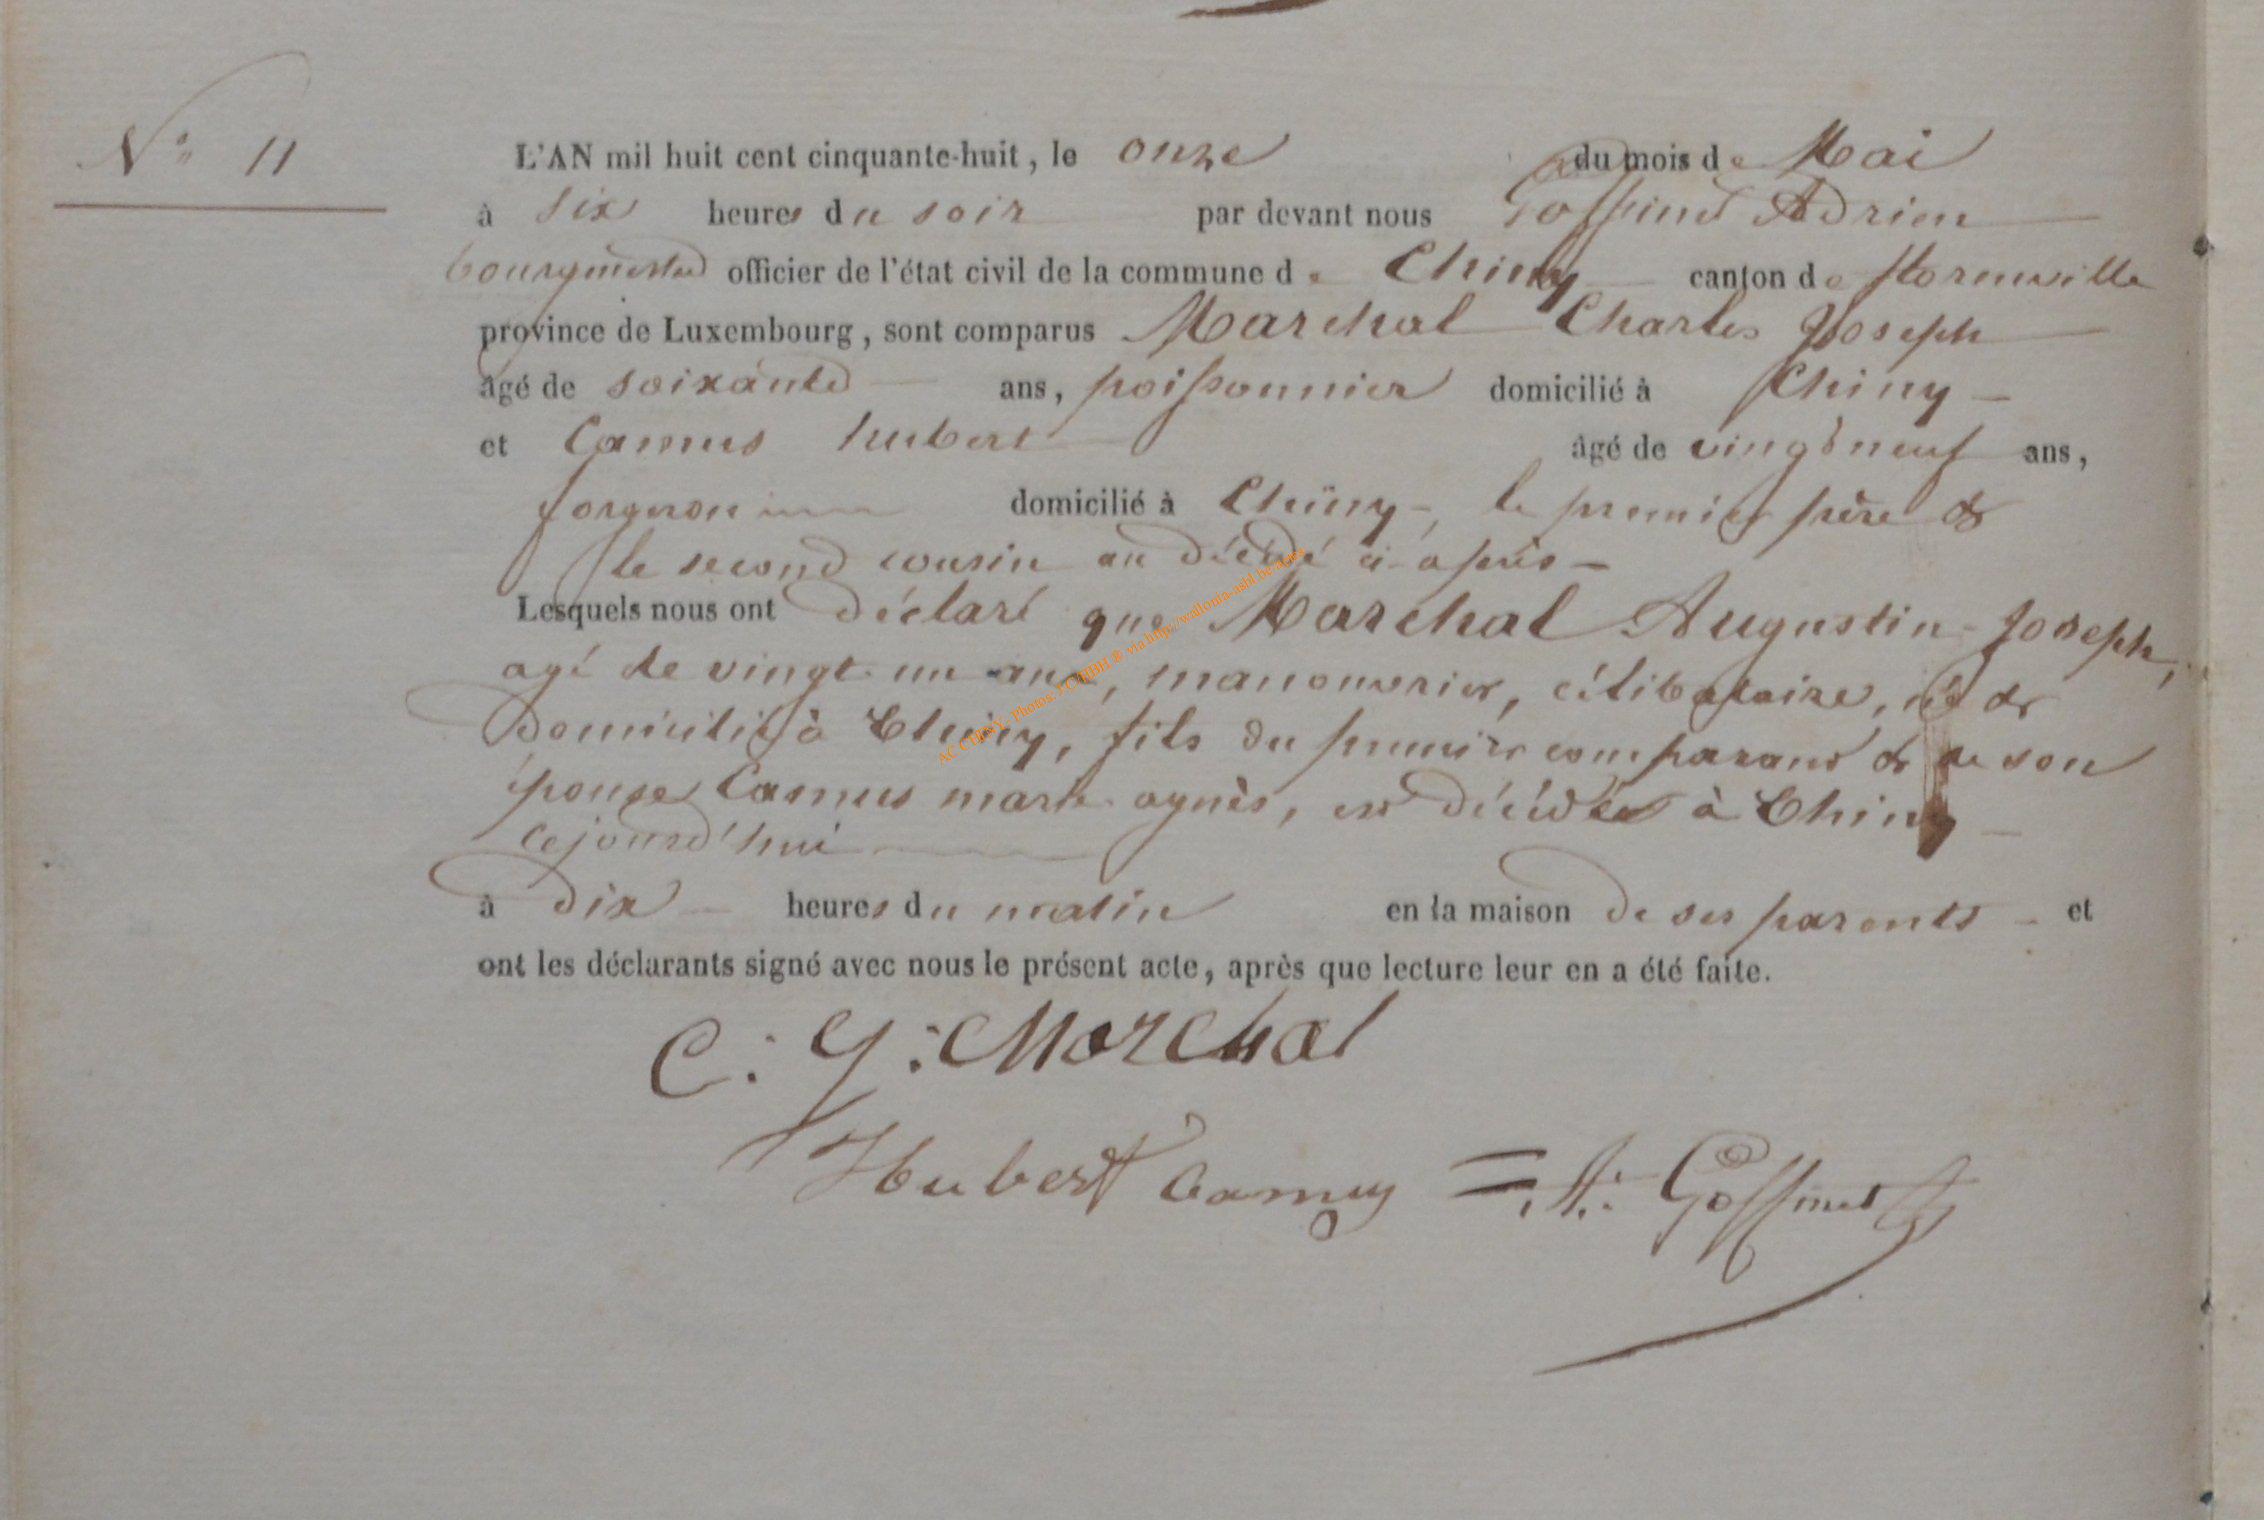 N° 11
L'AN mil huit cent cinquante-huit, le onze du mois de Mai
à six heures du soir par devant nous Goffinet Adrien
bourgmestre officier de l'état civil de la commune de Chiny canton de florenville
province de Luxembourg, sont comparus Marchal Charles Joseph
âgé de soixante ans, poissonnier domicilié à Chiny
et Camus hubert âgé de vingt neuf ans,
forgeron domicilié à Chiny, le premier père &
le second cousin au décédé ci-après
Lesquels nous ont déclaré que Marchal Augustin Joseph,
agé de vingt-un ans, manouvrier, célibataire, né &
domicilié à Chiny, fils du premier comparant & de son
épouse Camus marie agnès, est décédé à Chiny
cejourd'hui
à dix heures du matin en la maison de ses parents et
ont les déclarants signé avec nous le présent acte, après que lecture leur en a été faite.
C: J: Marchal
Hubert Camus = A: Goffinet
AC CHINY - Photos FC HBH ® via http://wallonia-asbl.be/actes